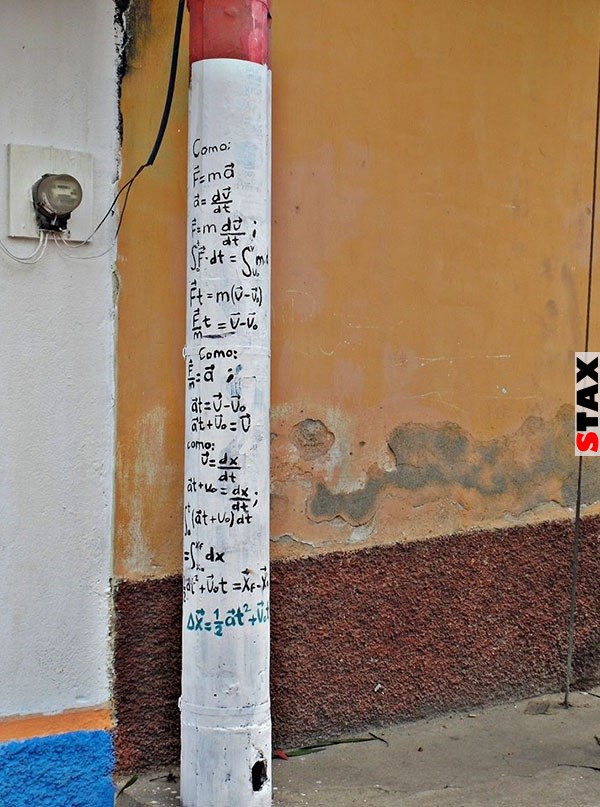 Como:
F⃗=ma⃗
a⃗=dv⃗/dt
F⃗=m dv⃗/dt ;
∫₀ᵗF⃗·dt = ∫ᵥ₀ᵛ m d
F⃗t = m(v⃗-v⃗₀)
F⃗/m t = v⃗-v⃗₀
Como:
F⃗/m = a⃗ ;
a⃗t=v⃗-v⃗₀
a⃗t+v⃗₀=v⃗
como:
v⃗=dx/dt
a⃗t+v₀=dx/dt ;
∫₀ᵗ(a⃗t+v₀)dt
=∫dx
t²+v⃗₀t=x⃗F-x⃗
Δx⃗=½a⃗t²+v⃗₀t
STAX